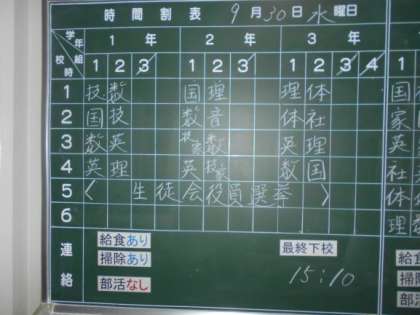 時間割表 9月30日水曜日
学年 組 校時 1年 2年 3年
1 2 3 1 2 3 1 2 3 4
1 技 数 国 理 理 体 国
2 国 技 数 音 体 社 家
3 数 英 技家 数 英 理 英
4 英 理 英 技家 数 国 社
5 〈 生徒会役員選挙 〉 体
6 理
連絡
給食あり 最終下校
掃除あり 15:10
部活なし
給食
掃除
部活